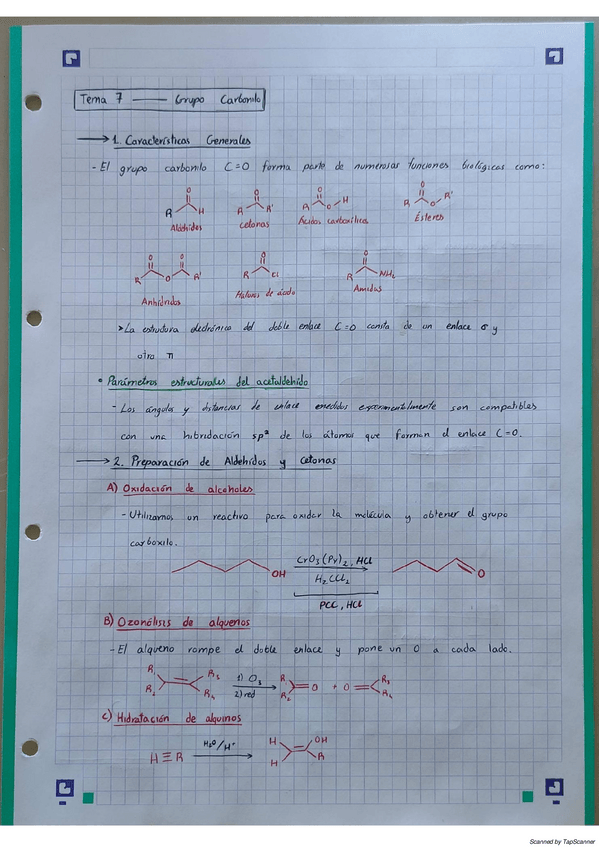 Tema 7 —— Grupo Carbonilo
→ 1. Características Generales
- El grupo carbonilo C=O forma parte de numerosas funciones biológicas como:
O O O O
R H R R' R O H R O R'
Aldhídos cetonas Ácidos carboxílicos Ésteres
O O O O
R O R' R Cl R NH₂
Anhídridos Haluros de ácido Amidas
> La estructura electrónica del doble enlace C=O consta de un enlace σ y
otro π
• Parámetros estructurales del acetaldehído
- Los ángulos y distancias de enlace medidos experimentalmente son compatibles
con una hibridación sp² de los átomos que forman el enlace C=O.
→ 2. Preparación de Aldehídos y Cetonas
A) Oxidación de alcoholes
- Utilizamos un reactivo para oxidar la molécula y obtener el grupo
carboxilo.
OH CrO₃(Pr)₂, HCl O
H₂CCl₂
PCC, HCl
B) Ozonólisis de alquenos
- El alqueno rompe el doble enlace y pone un O a cada lado.
R₁ R₃ 1) O₃ R₁ R₃
R₂ R₄ 2) red R₂ =O + O= R₄
C) Hidratación de alquinos
H≡R H₂O/H⁺ H OH
H R
Scanned by TapScanner